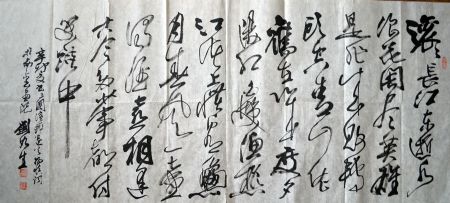 滚滚长江东逝水
浪花淘尽英雄
是非成败转
头空青山依
旧在几度夕
阳红白发渔樵
江渚上惯看秋
月春风一壶
浊酒喜相逢
古今多少事都付
笑谈中